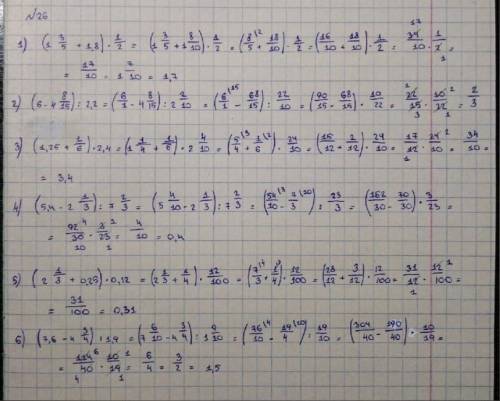 №26
1) (1 3/5 + 1,8) · 1/2 = (1 3/5 + 1 8/10) · 1/2 = (8/5^(2 + 18/10) · 1/2 = (16/10 + 18/10) · 1/2 = 34/10 · 1/2 = 17 1
= 17/10 = 1 7/10 = 1,7
2) (6 - 4 8/15) : 2,2 = (6/1 - 4 8/15) : 2 2/10 = (6/1^(15 - 68/15) : 22/10 = (90/15 - 68/15) · 10/22 = 22/15 · 10/22 = 2/3
3) (1,25 + 1/6) · 2,4 = (1 1/4 + 1/6) · 2 4/10 = (5/4^(3 + 1/6^(2) · 24/10 = (15/12 + 2/12) · 24/10 = 17/12 · 24/10 = 34/10 =
= 3,4
4) (5,4 - 2 1/3) : 7 2/3 = (5 4/10 - 2 1/3) : 7 2/3 = (54/10^(3 - 7/3^(10) : 23/3 = (162/30 - 70/30) · 3/23 =
= 92/30 · 3/23 = 4/10 = 0,4
5) (2 1/3 + 0,25) · 0,12 = (2 1/3 + 1/4) · 12/100 = (7/3^(4 + 1/4^(3) · 12/100 = (28/12 + 3/12) · 12/100 = 31/12 · 12/100 =
= 31/100 = 0,31
6) (7,6 - 4 3/4) : 1,9 = (7 6/10 - 4 3/4) : 1 9/10 = (76/10^(4 - 19/4^(10) : 19/10 = (304/40 - 190/40) · 10/19 =
= 114/40 · 10/19 = 6/4 = 3/2 = 1,5